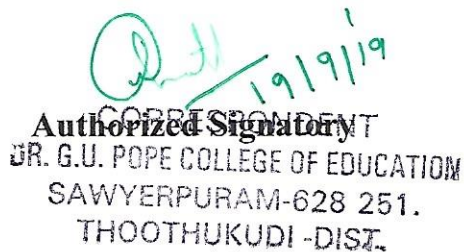 19/9/19
CORRESPONDENT
Authorized Signatory
DR. G.U. POPE COLLEGE OF EDUCATION
SAWYERPURAM-628 251.
THOOTHUKUDI -DIST.